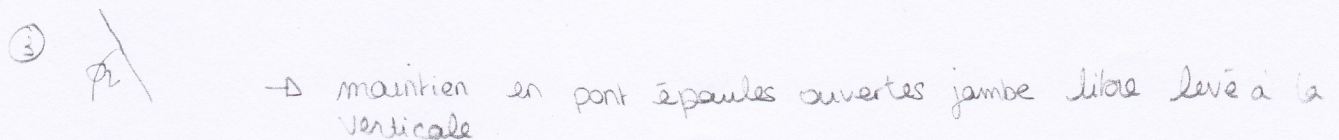 ③ → maintien en pont épaules ouvertes jambe libre levé à la
verticale